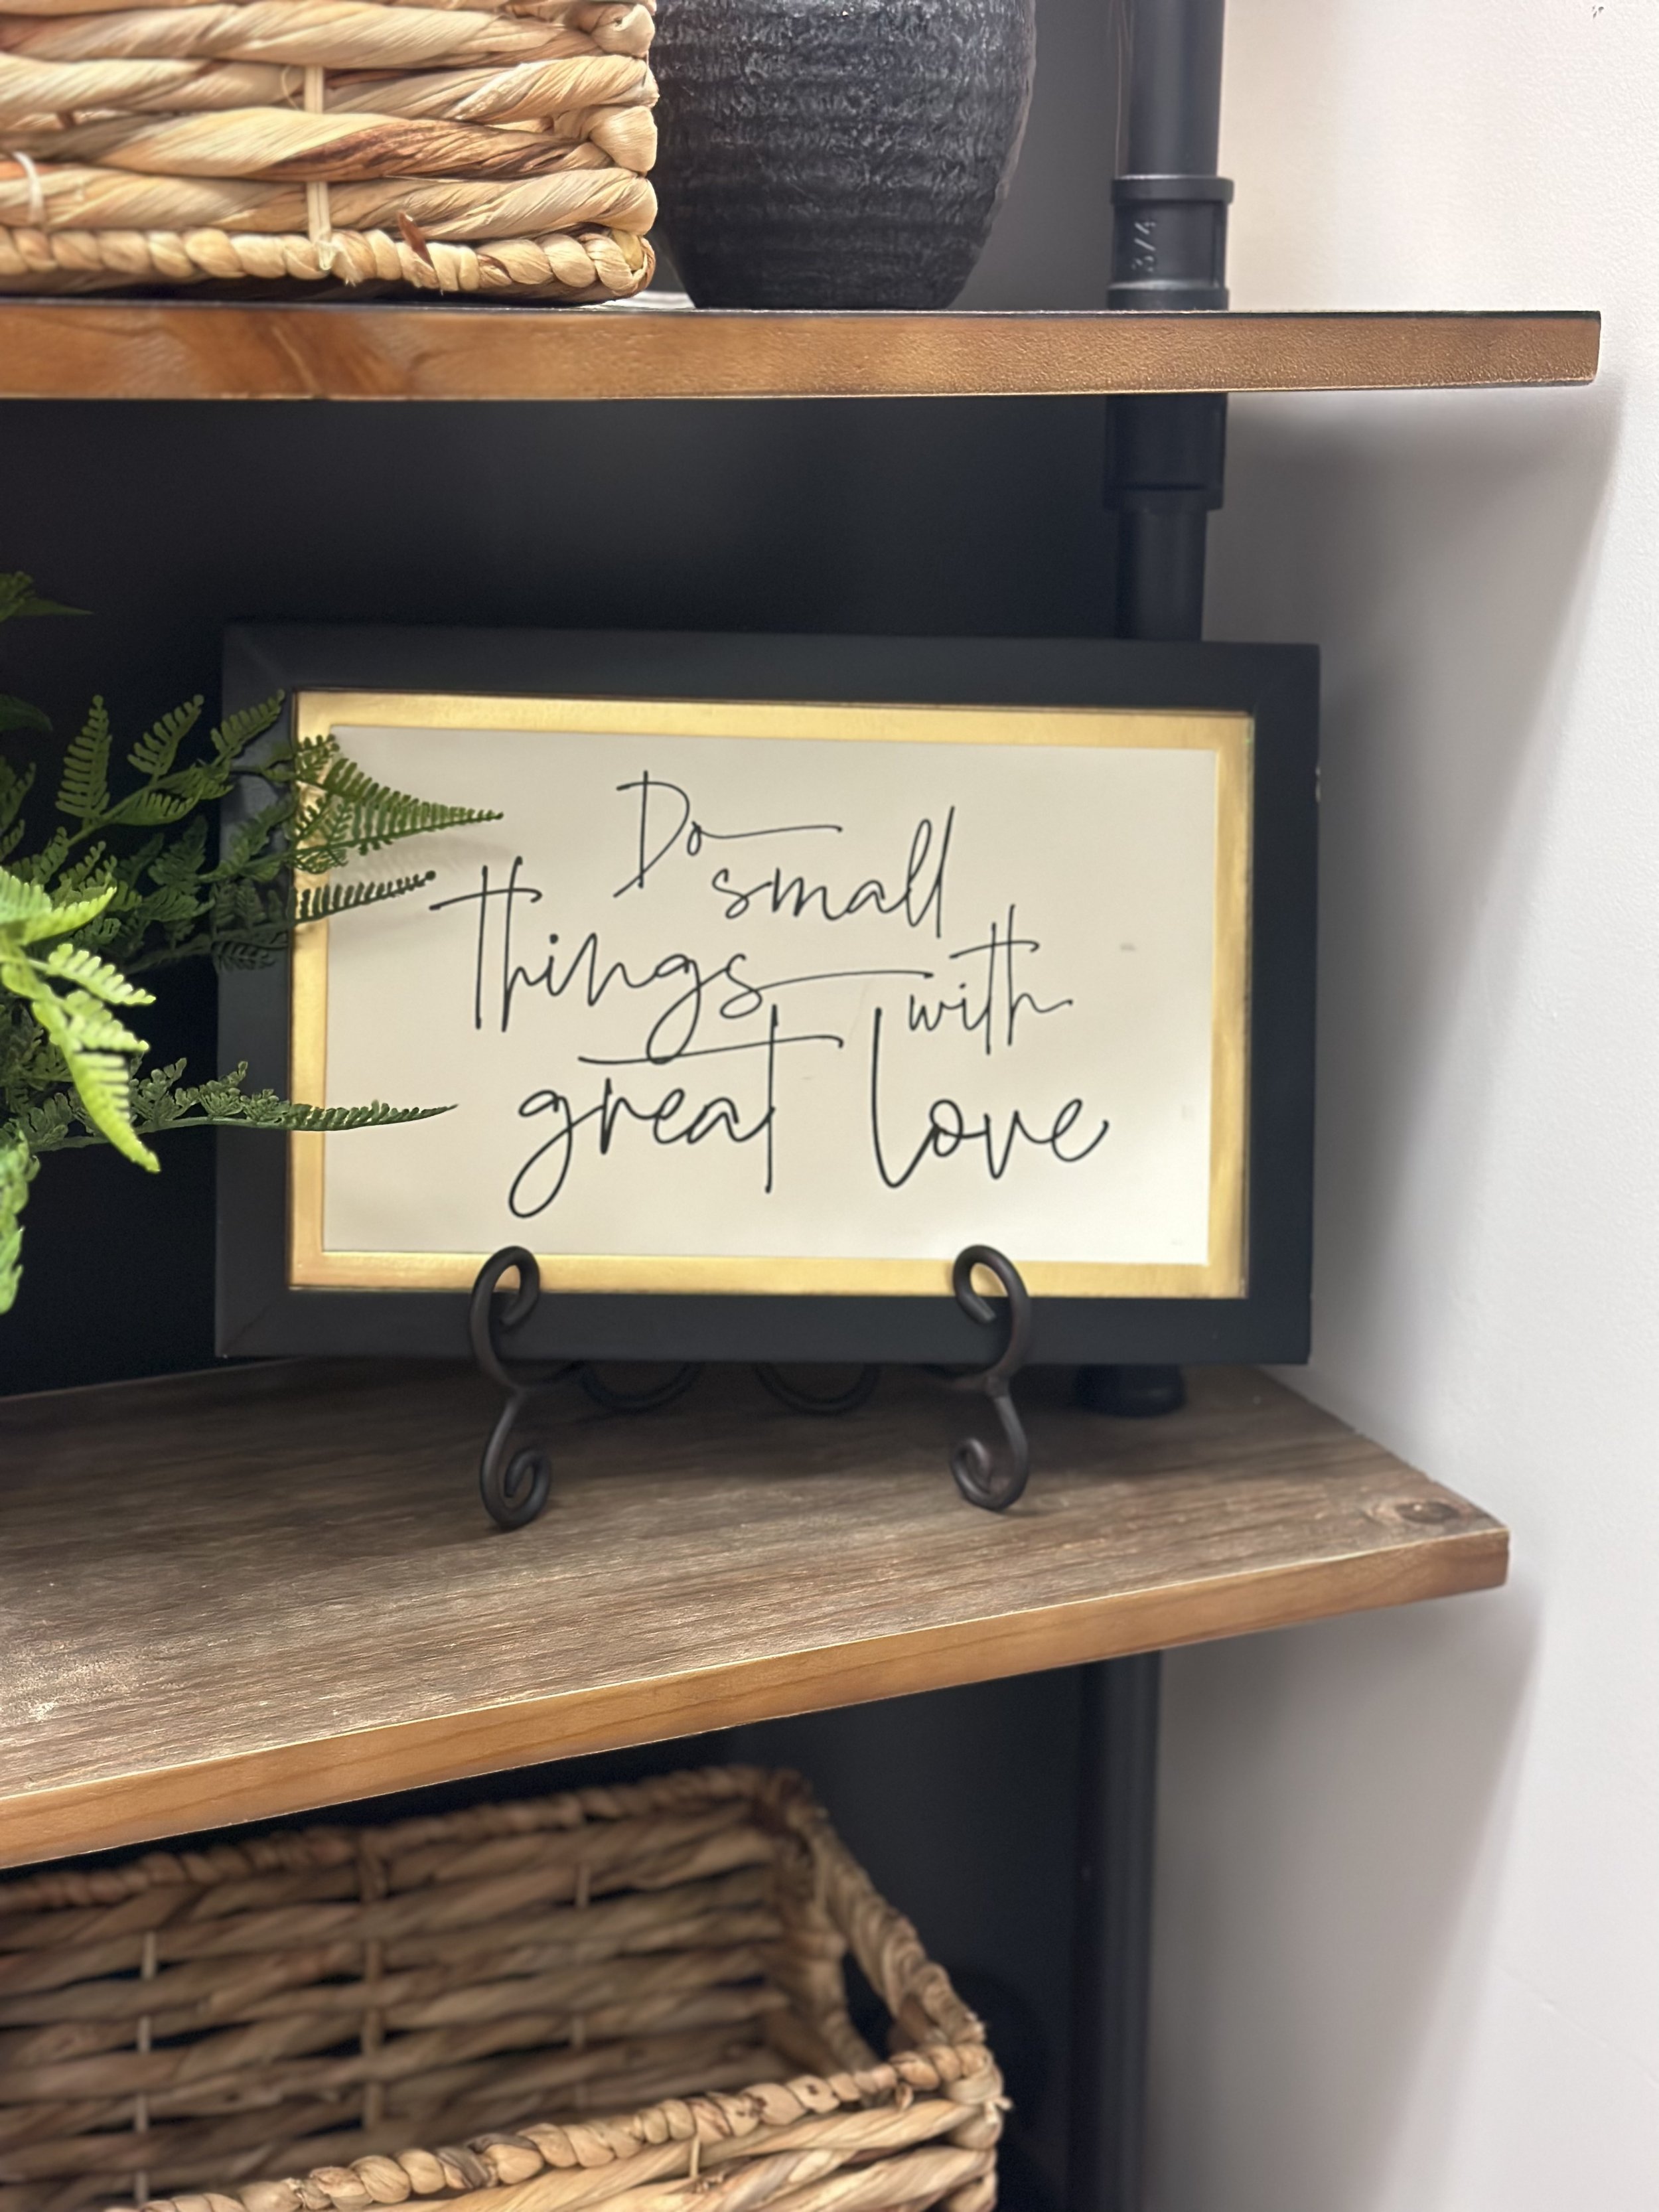 3/4
Do
small
things with
great love